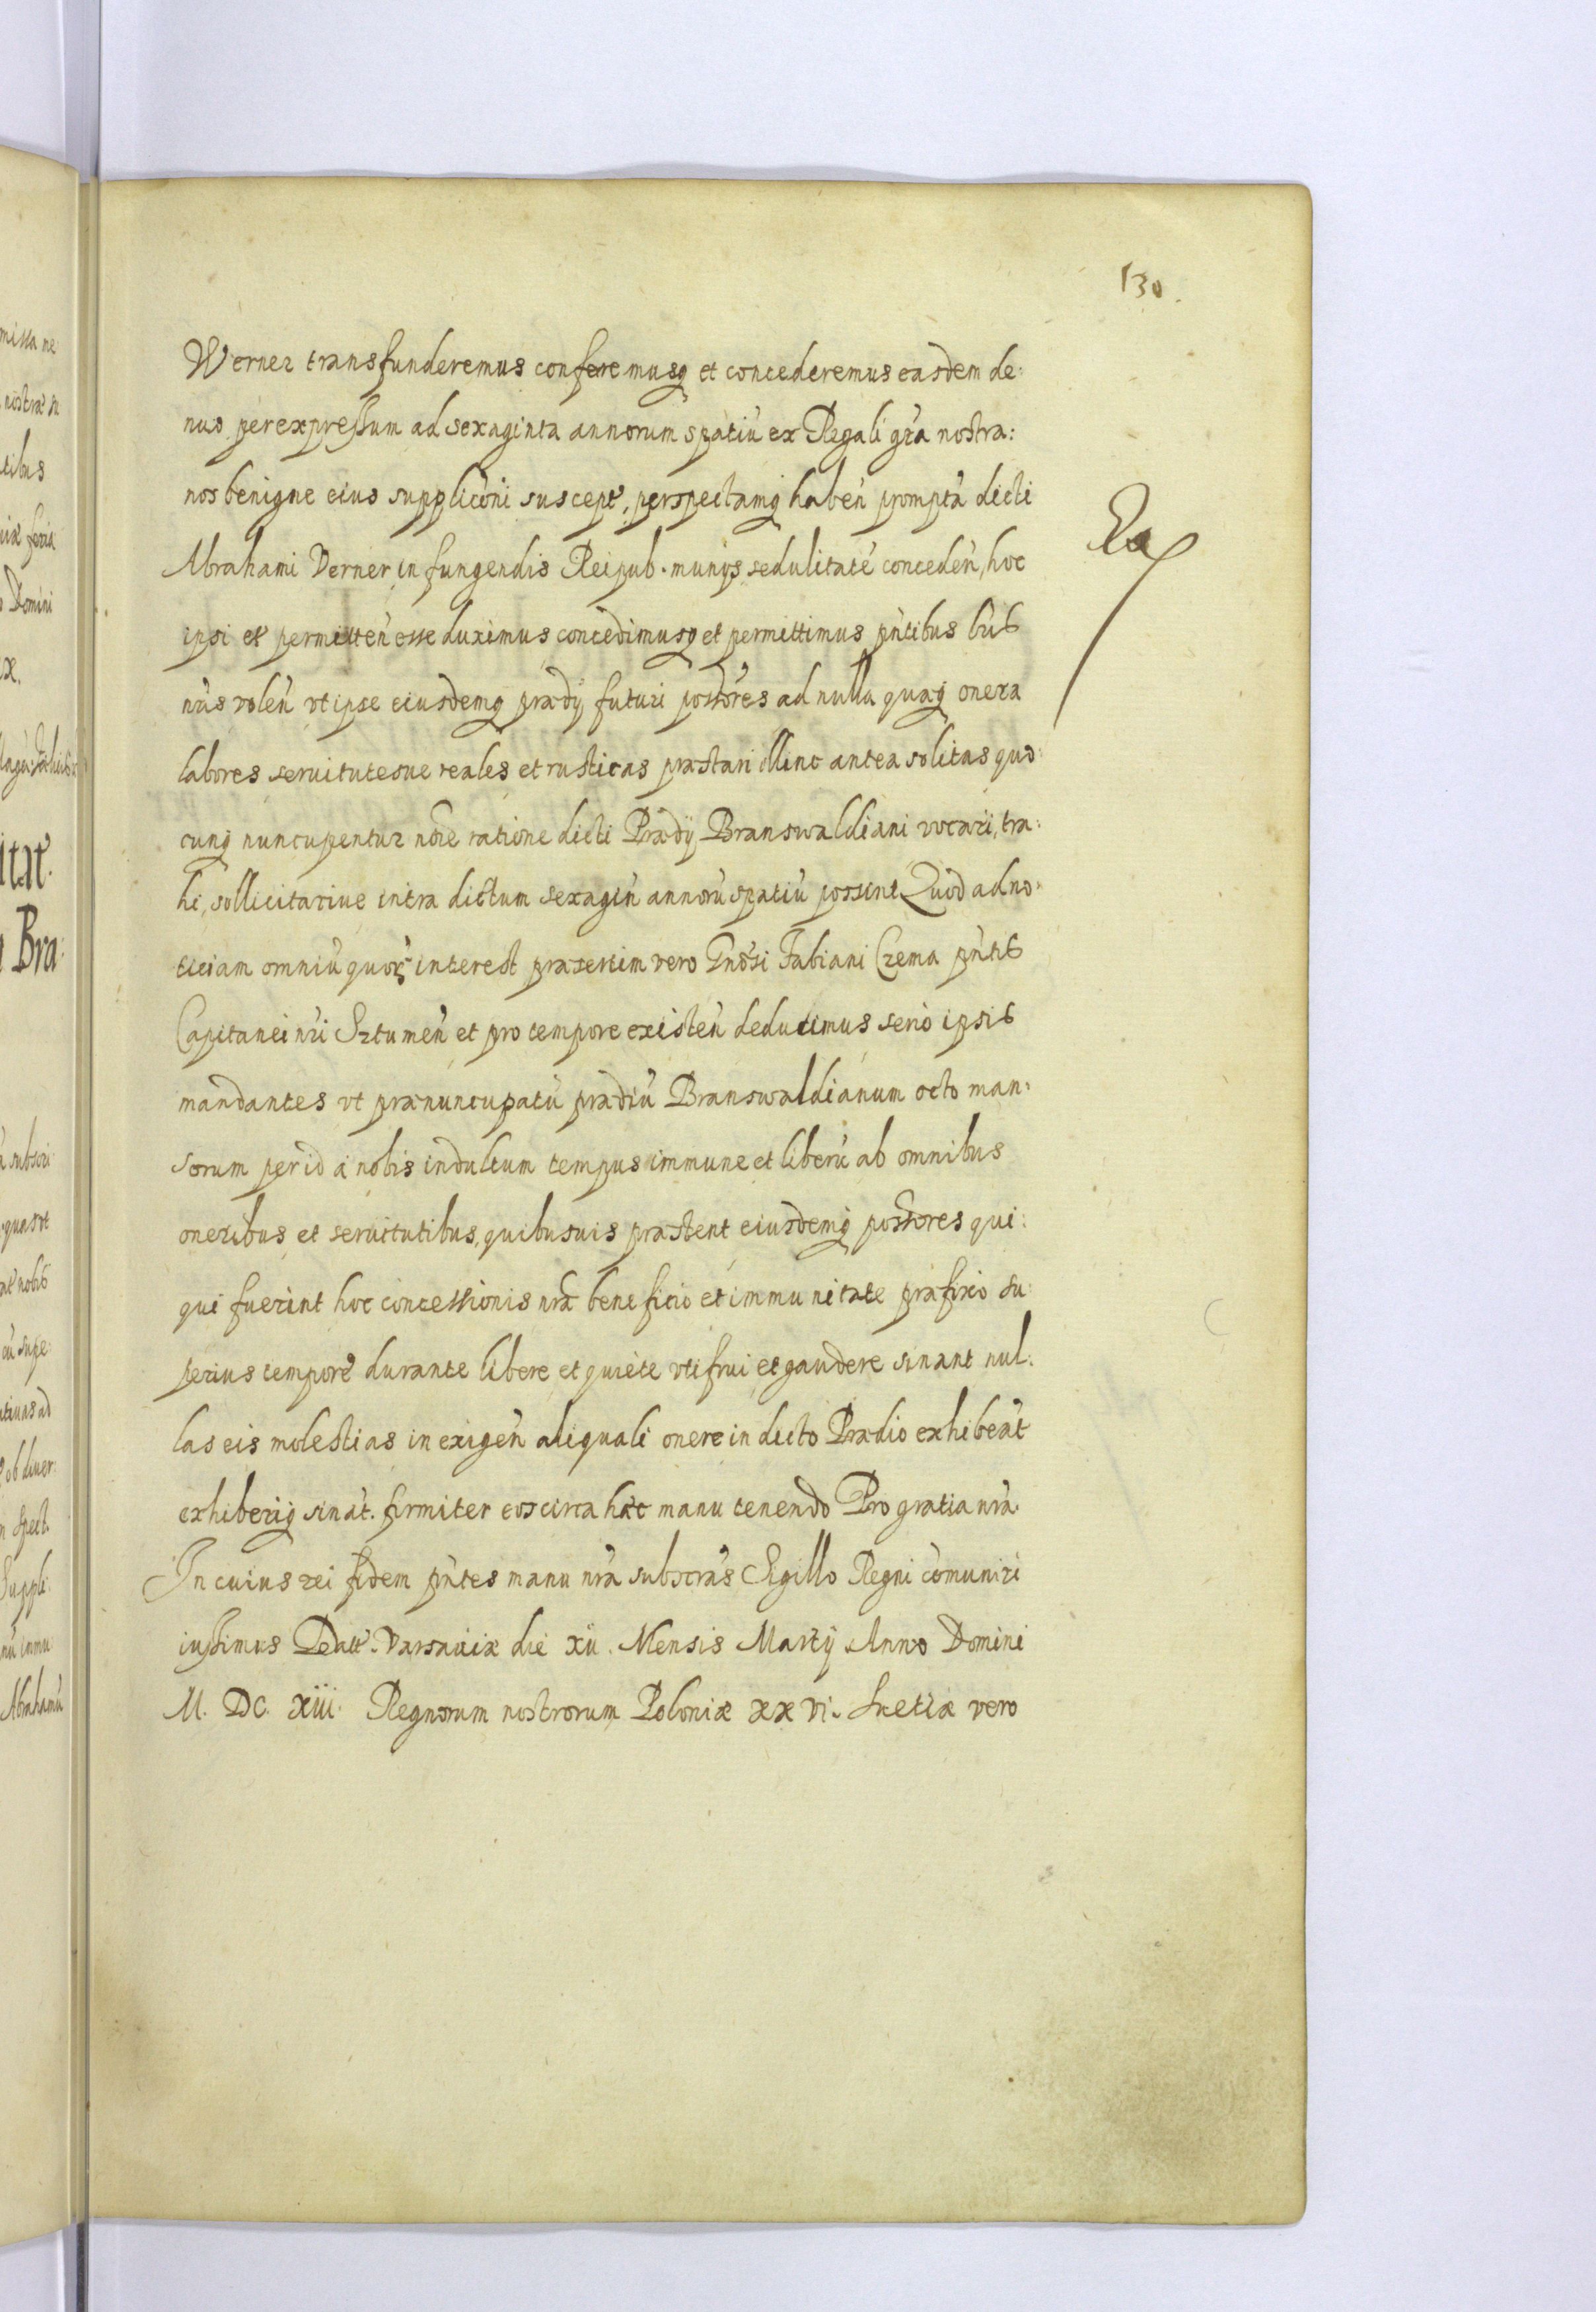 130.
Werner transfunderemus conferemusq et concederemus easdem de:
nuo per expressum ad sexaginta annorum spatiũ ex Regali gr̃a nostra:
nos benigne eius supplicõni suscept, perspectamq haben̄ promptã dicti
Abrahami Verner in fungendis Reipub. munijs sedulitatẽ conceden̄, hoc
ipsi et permitten̄ esse duximus concedimusq et permittimus pñtibus lr̃is
nr̃is volen̄ vt ipse eiusdemq prædij futuri possõres ad nulla quæq onera
labores seruitutesue reales et rusticas præstari illinc antea solitas quo:
cunq nuncupentur nõie ratione dicti Prædij Branswaldiani vocari, tra:
hi, sollicitariue intra dictum sexagin̄ annorũ spatiũ possint Quod ad no:
ticiam omniũ quorũ interest præsertim vero Gnõsi Fabiani Czema pñtis
Capitanei nr̃i Sztumen̄ et pro tempore existen̄ deducimus serio ipsis
mandantes vt prænuncupatũ prædiũ Branswaldianum octo man:
sorum per id a nobis indultum tempus immune et liberũ ab omnibus
oneribus et seruitutibus, quibusuis præstent eiusdemq possores qui:
qui fuerint hoc concessionis nr̃æ beneficio et immunitate præfixo su:
perius tempore durante libere et quiete vti frui et gaudere sinant nul:
las eis molestias in exigen̄ aliquali onere in dicto Prædio exhibeãt
exhiberiq sinãt. firmiter eos circa hæc manu tenendo Pro gratia nr̃a.
In cuius rei fidem pñtes manu nr̃a subscrãs Sigillo Regni cõmuniri
iussimus Datt. Varsauiæ die xii. Mensis Martij Anno Domini
M. DC. xiii. Regnorum nostrorum Poloniæ xxvi. Suetiæ vero